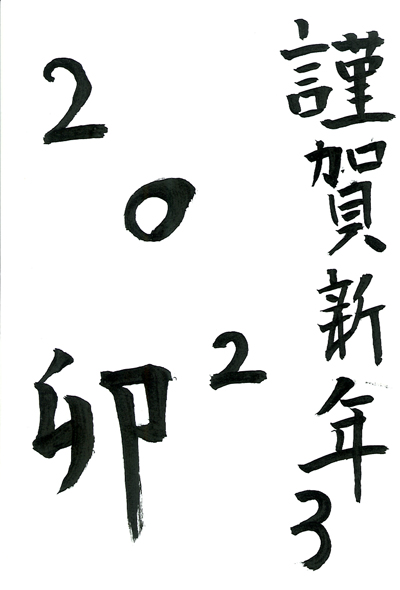 謹賀新年
2023
卯